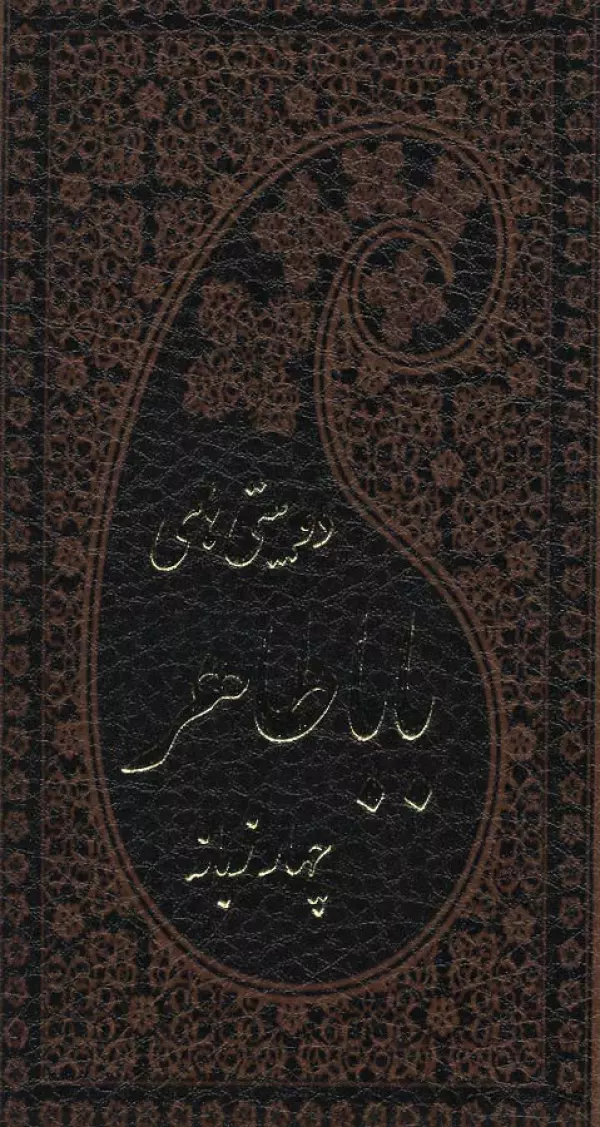 دوبیتی های
باباطاهر
چهار زبانه